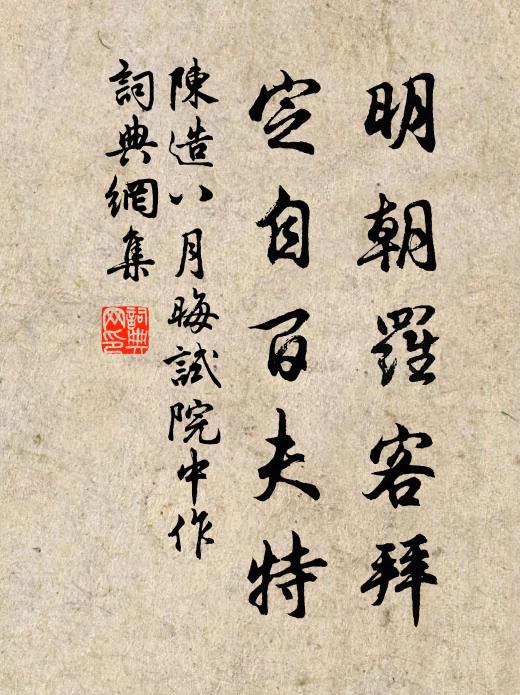 明朝羅客拜
定自百夫特
陳造八月晦試院中作
詞典網集
詞典网印